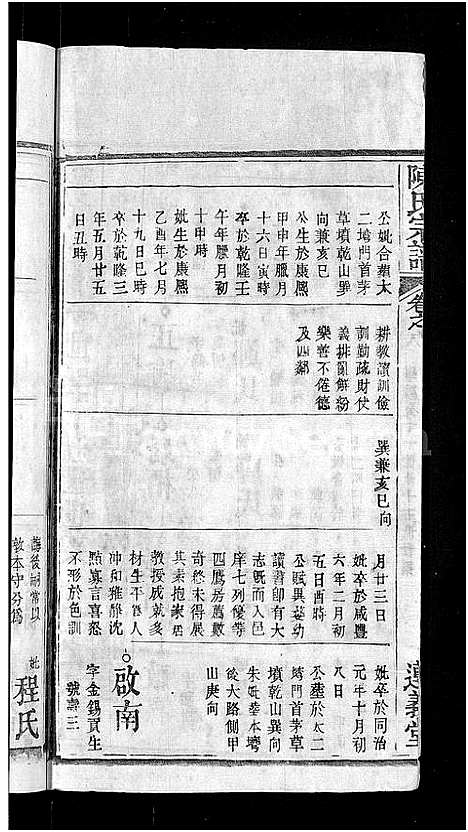 陳氏宗譜
卷之
公妣合葬大
二塆門首茅
草墳乾山巽
向兼亥巳
公生於康熙
甲申年臘月
十六日寅時
卒於乾隆壬
午年臘月初
十申時
妣生於康熙
乙酉年七月
十九日巳時
卒於乾隆三
年五月廿五
日丑時
耕教讀訓儉
訓勤疏財仗
義排難解紛
樂善不倦德
及四鄰
巽兼亥巳向
月廿三日
妣卒於咸豐
六年二月初
五日酉時
公賦異葵幼
讀書即有大
志既而入邑
庠七列優等
四薦房萬數
奇然未得展
其素抱家居
教授成就多
材生平爲人
沖和雅靜沈
默寡言喜怒
不形於色訓
妣卒於同治
元年十月初
八日
公葬於大二
塆門首茅草
墳乾山巽向
朱妣葬本塆
後大路側甲
山庚向
啟南
字金錫貢生
號壽三
義堂
以
敦本守分爲
妣
程氏